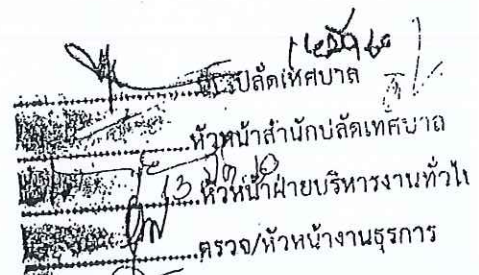 ปลัดเทศบาล
หัวหน้าสำนักปลัดเทศบาล
หัวหน้าฝ่ายบริหารงานทั่วไป
ตรวจ/หัวหน้างานธุรการ